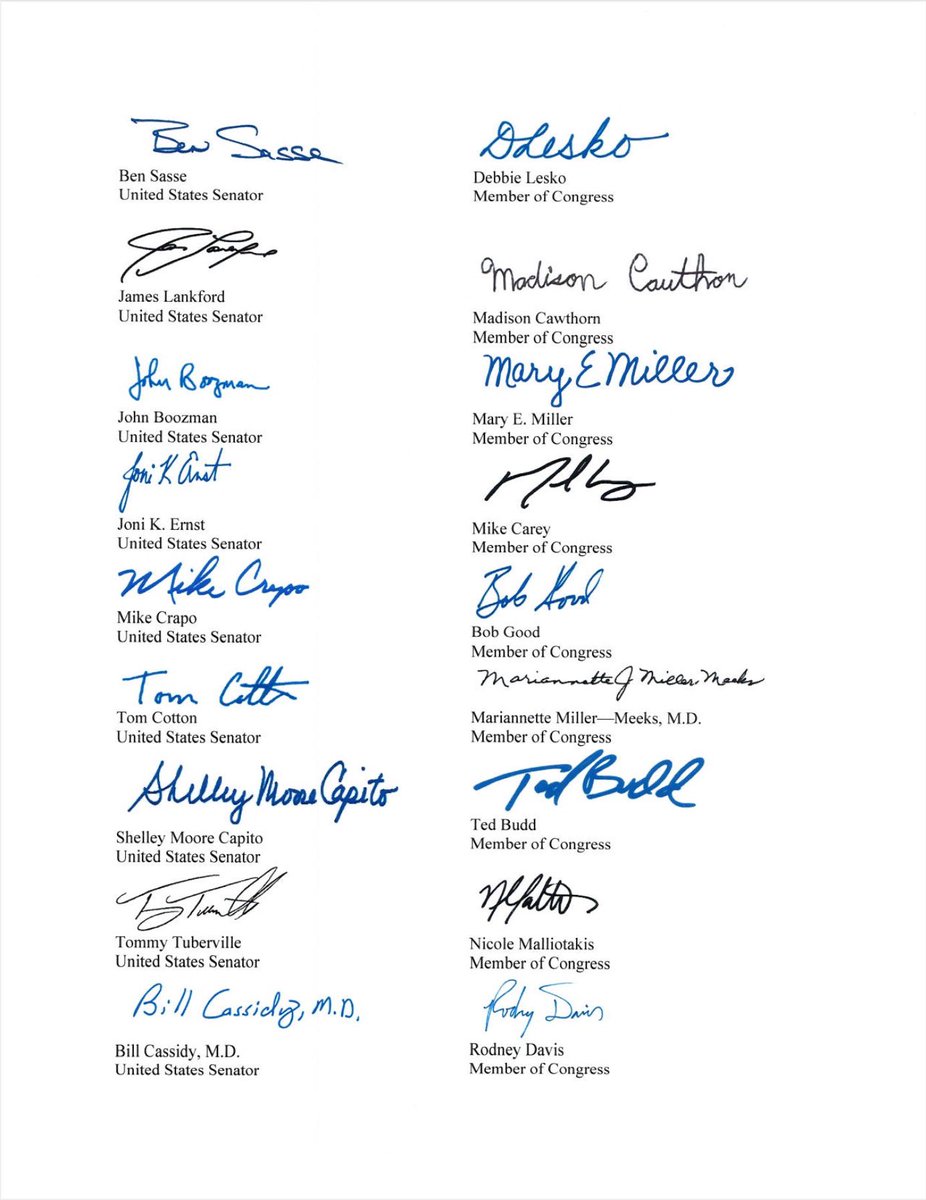 Ben Sasse
Ben Sasse
United States Senator
James Lankford
United States Senator
John Boozman
John Boozman
United States Senator
Joni K Ernst
Joni K. Ernst
United States Senator
Mike Crapo
Mike Crapo
United States Senator
Tom Cotton
Tom Cotton
United States Senator
Shelley Moore Capito
Shelley Moore Capito
United States Senator
Tommy Tuberville
United States Senator
Bill Cassidy, M.D.
Bill Cassidy, M.D.
United States Senator
DLesko
Debbie Lesko
Member of Congress
Madison Cawthorn
Madison Cawthorn
Member of Congress
Mary E Miller
Mary E. Miller
Member of Congress
Mike Carey
Member of Congress
Bob Good
Bob Good
Member of Congress
Mariannette J Miller-Meeks
Mariannette Miller—Meeks, M.D.
Member of Congress
Ted Budd
Ted Budd
Member of Congress
Nicole Malliotakis
Member of Congress
Rodney Davis
Rodney Davis
Member of Congress